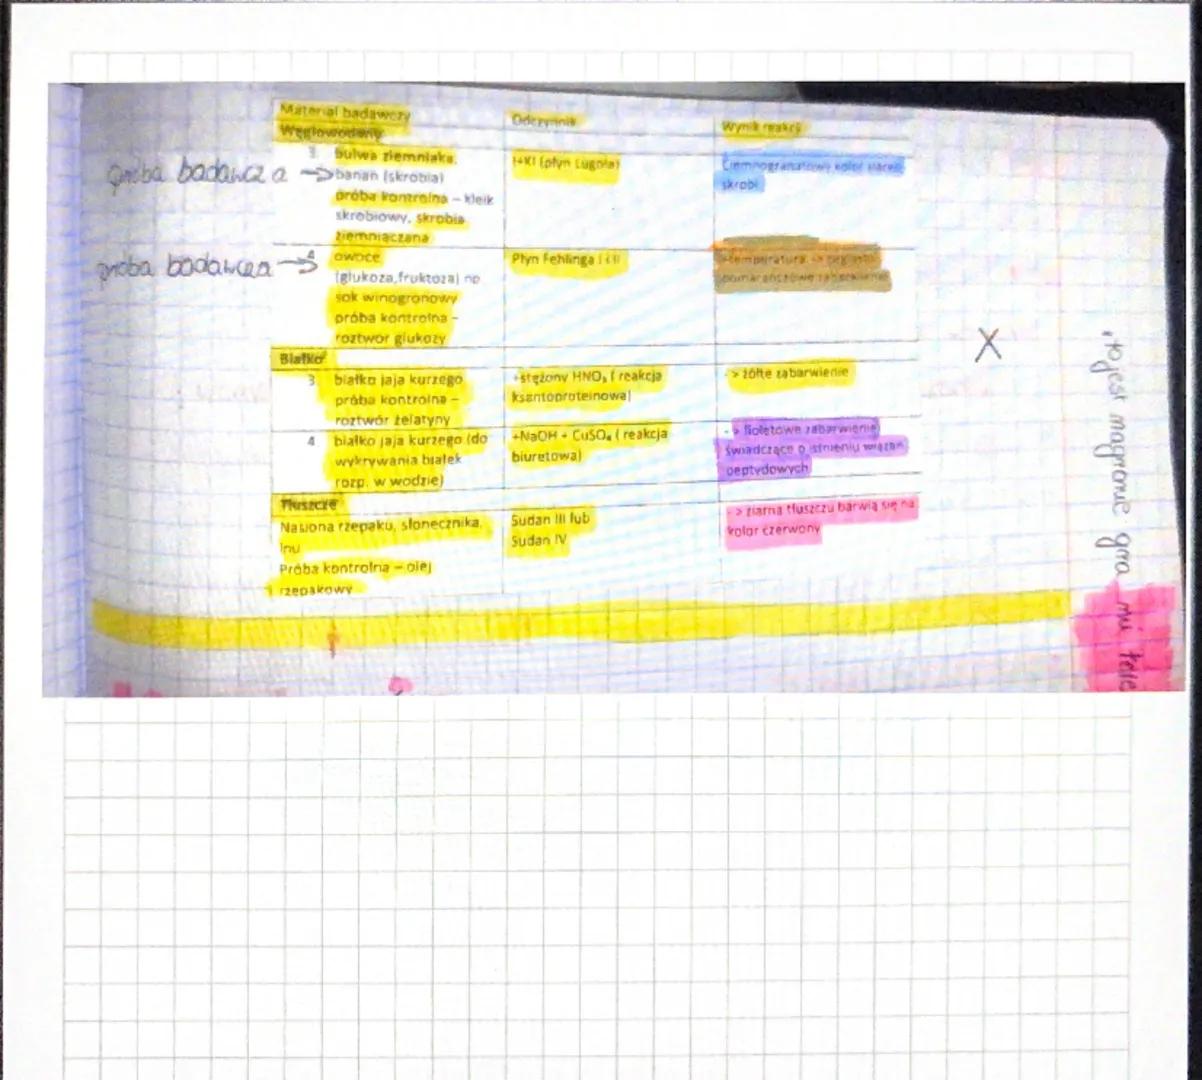 Materiał badawczy
Odczynnik
Wynik reakcji
Węglowodany
próba badawcza ->
3 bulwa ziemniaka,
banan (skrobia)
próba kontrolna – kleik
skrobiowy, skrobia
ziemniaczana
I+KI (płyn Lugola)
Ciemnogranatowy kolor
skrobi
próba badawcza ->
4 owoce
(glukoza,fruktoza) np
sok winogronowy
próba kontrolna –
roztwór glukozy
Płyn Fehlinga I i II
+temperatura -> ceglasto
pomarańczowe zabarwienie
Białko
3 białko jaja kurzego
próba kontrolna –
roztwór żelatyny
+stężony HNO₃ ( reakcja
ksantoproteinowa)
- > żółte zabarwienie
4 białko jaja kurzego (do
wykrywania białek
rozp. w wodzie)
+NaOH + CuSO₄ ( reakcja
biuretowa)
- > fioletowe zabarwienie
świadczące o istnieniu wiązań
peptydowych
Tłuszcze
Nasiona rzepaku, słonecznika,
lnu
Próba kontrolna – olej
rzepakowy
Sudan III lub
Sudan IV
- > ziarna tłuszczu barwią się na
kolor czerwony
X
to jest gra mi